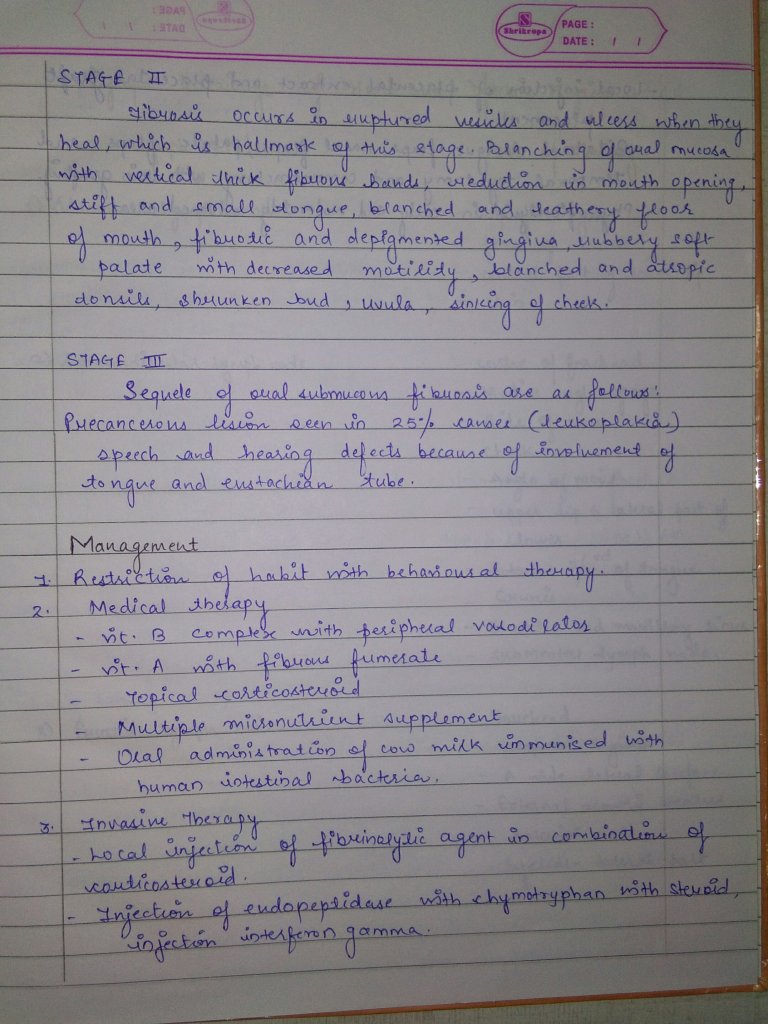 Shrikrupa
PAGE :
DATE : / /
STAGE II
Fibrosis occurs in ruptured vesicles and ulcess when they
heal, which is hallmark of this stage. Blanching of oral mucosa
with vertical thick fibrous bands, reduction in mouth opening,
stiff and small tongue, blanched and leathery floor
of mouth, fibrotic and depigmented gingiva, rubbery soft
palate with decreased motility, blanched and atropic
tonsils, shrunken bud, uvula, sinking of cheek.
STAGE III
Sequele of oral submucous fibrosis are as follows:
Precancerous lesion seen in 25% causes (leukoplakia)
speech and hearing defects because of involvement of
tongue and eustachian tube.
Management
1. Restriction of habit with behavioural therapy.
2. Medical therapy
- vit. B complex with peripheral vasodilator
- vit. A with fibrous fumerate
- Topical corticosteroid
- Multiple micronutrient supplement
- Oral administration of cow milk immunised with
human intestinal bacteria.
3. Invasive Therapy
- Local injection of fibrinolytic agent in combination of
corticosteroid.
- Injection of endopeptidase with chymotryphan with steroid,
injection interferon gamma.